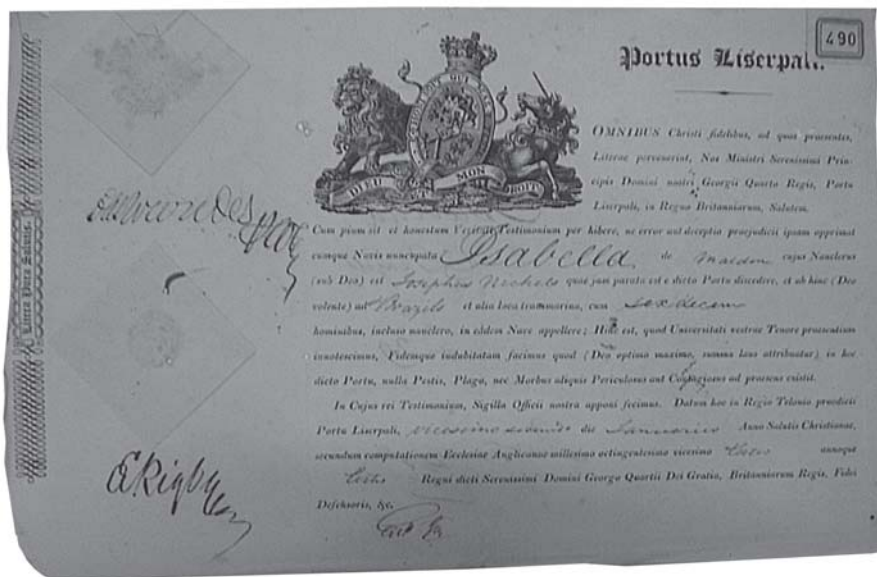 490
Portus Liserpali.
HONI SOIT QUI MAL
DIEU ET MON DROIT
OMNIBUS Christi fidelibus, ad quos praesentes,
Literae pervenerint, Nos Ministri Serenissimi Prin-
cipis Domini nostri Georgii Quarto Regis, Portu
Liserpoli, in Regno Britanniarum, Salutem.
Cum pium sit et honestum Veritati Testimonium per hibere, ne error aut deceptio praejudicii ipsam opprimat
cumque Navis nuncupata Isabella de Maldon cujus Nauclerus
(sub Deo) est Josephus Nichols quae jam parata est e dicto Portu discedere, et ab hinc (Deo
volente) ad Brazils et alia loca transmarina, cum sexdecem
hominibus, incluso nauclero, in eddem Nave appellere; Hinc est, quod Universitati vestrae Tenore praesentium
innotescimus, Fidemque indubitatam facimus quod (Deo optimo maximo, summa laus attribuatur) in hoc
dicto Portu, nulla Pestis, Plaga, nec Morbus aliquis Periculosus aut Contagiosus ad praesens existit.
In Cujus rei Testimonium, Sigilla Officii nostra apponi fecimus. Datum hoc in Regio Telonio praedicti
Portu Liserpoli, vicessimo die Januarius Anno Salutis Christianae,
secundum computationem Ecclesiae Anglicanae millesimo octingentesimo vicesimo annoque
Regni dicti Serenissimi Domini George Quartii Dei Gratia, Britanniarum Regis, Fidei
Defensoris, &c.
ERigby